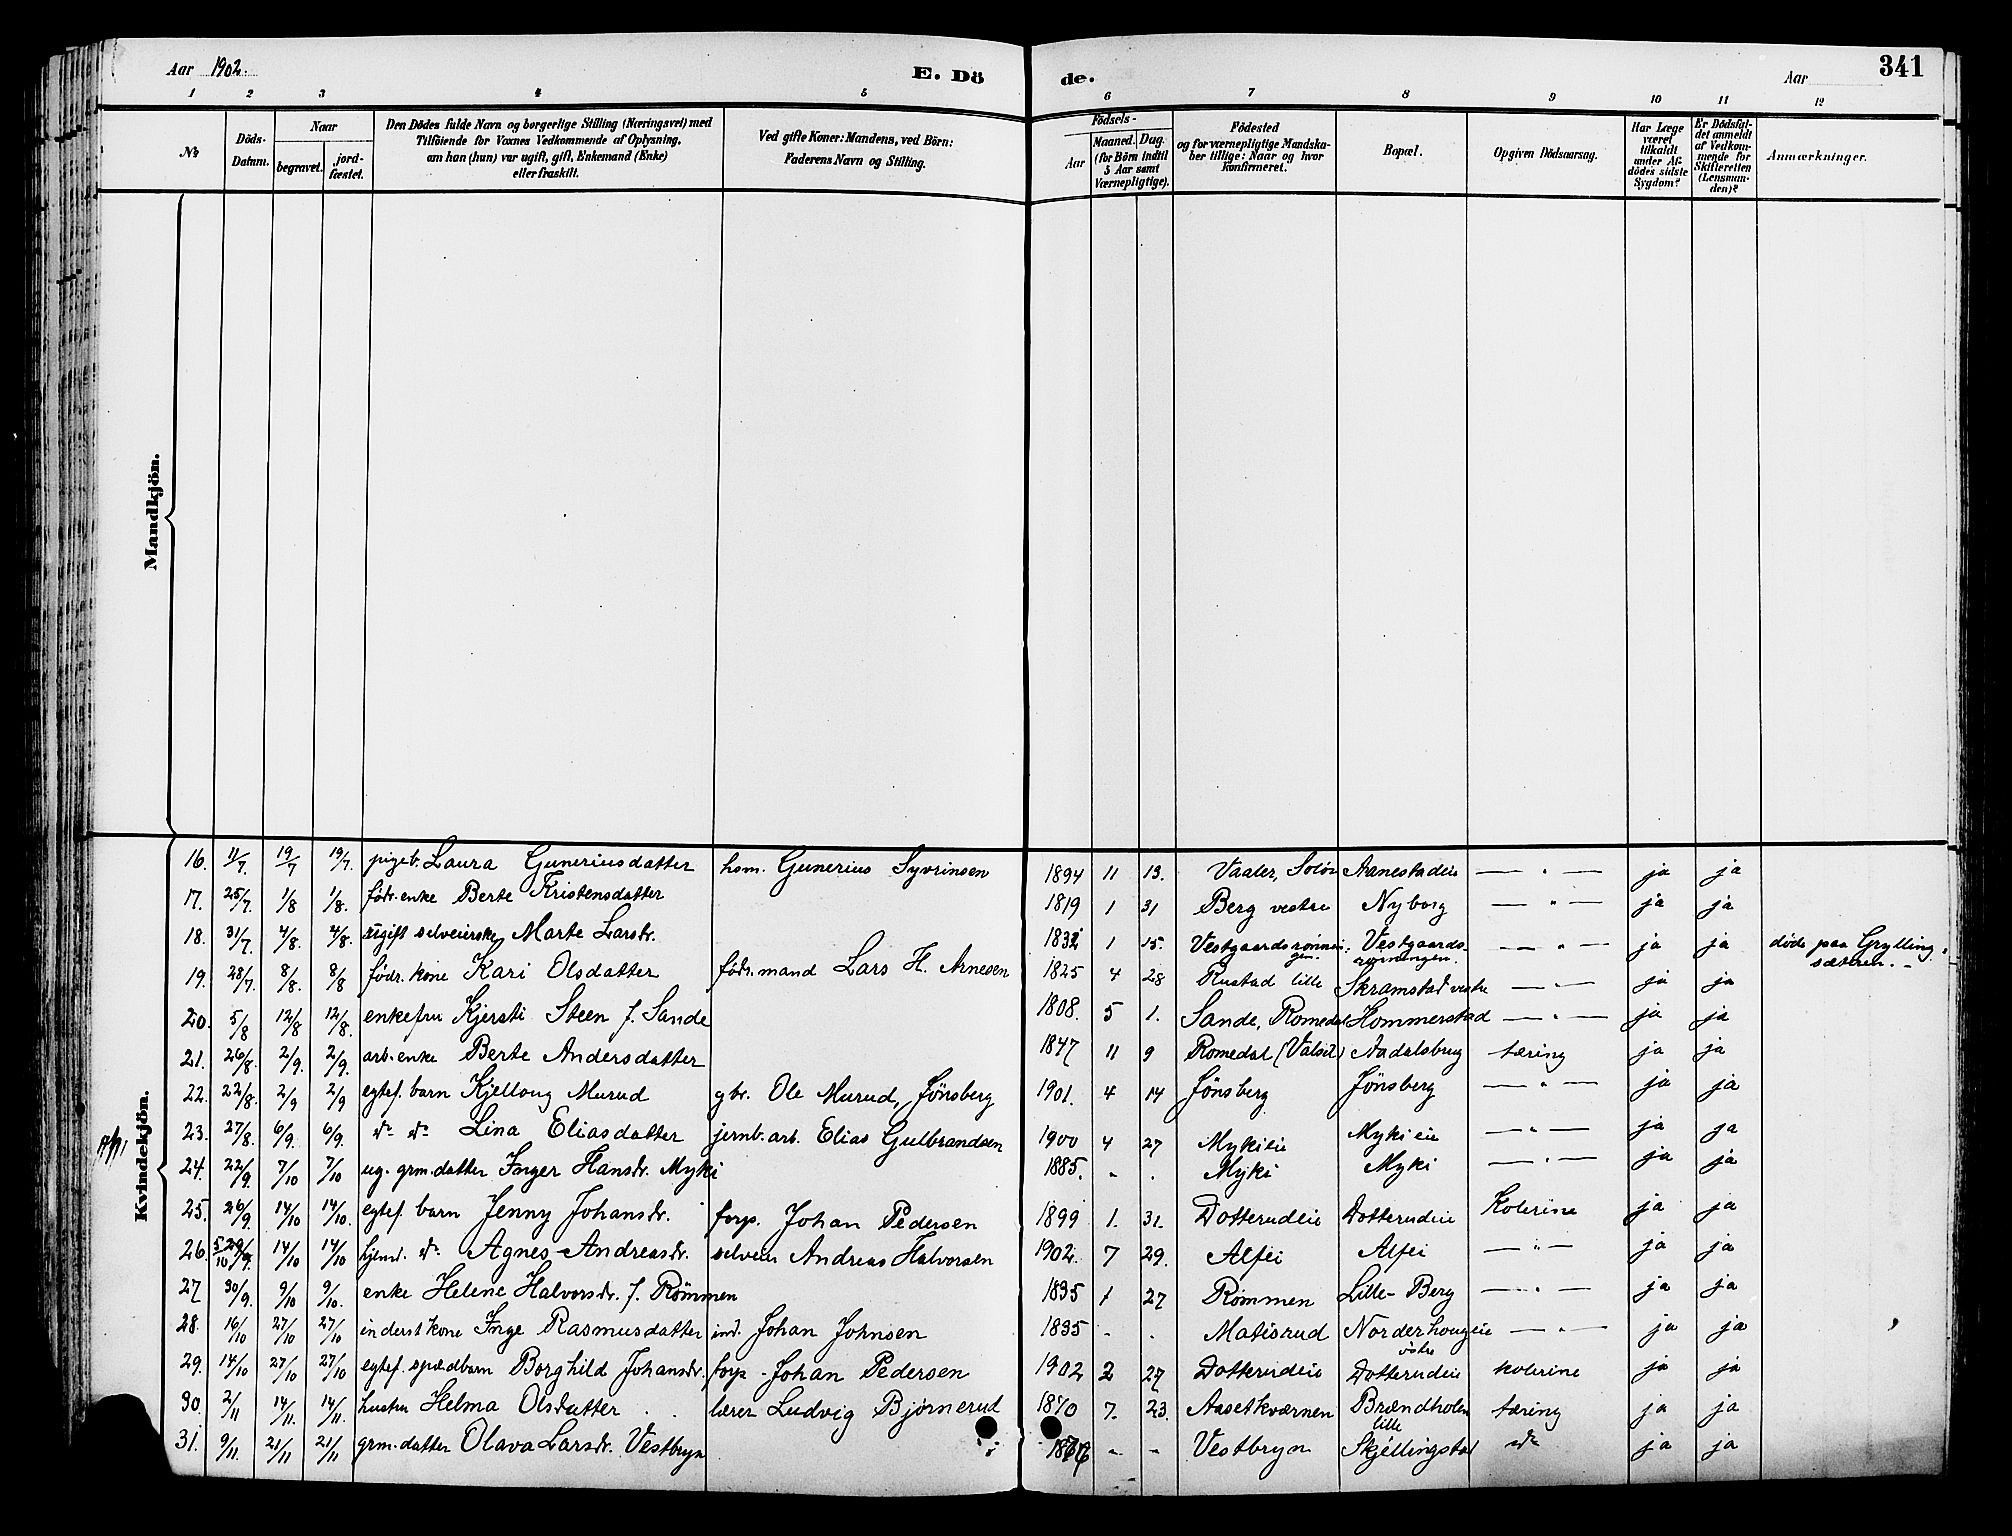 Aar 1902. E. Dö de. Aar 341
1 2 3 4 5 6 7 8 9 10 11 12
No
Döds-Datum.
Naar
begravet. jord-fæstet.
Den Dödes fulde Navn og borgerlige Stilling (Næringsvei) med
Tilföiende for Voxnes Vedkommende af Oplysning,
om han (hun) var ugift, gift, Enkemand (Enke)
eller fraskilt.
Ved gifte Koner: Mandens, ved Börn:
Faderens Navn og Stilling.
Födsels-
Aar Maaned. Dag.
(for Börn indtil
5 Aar samt
Værnepligtige).
Födested
og for værnepligtige Mandska-
ber tillige: Naar og hvor
konfirmeret.
Bopæl.
Opgiven Dödsaarsag.
Har Læge
været
tilkaldt
under Af-
dödes sidste
Sygdom?
Er Dödsfal-
det anmeldt
af Vedkom-
mende for
Skifteretten
(Lensman-
den)?
Anmærkninger.
Mandkjön.
Kvindekjön.
16. 11/7. 19/7 19/7. pigeb. Laura Guneriusdatter hsm. Gunerius Syvrinsen 1894 11 13. Vaaler, Solør Aanestadeie — " — ja ja
17. 25/7. 1/8 1/8. födr. enke Berte Kristensdatter 1819 1 31 Berg vestre Nyborg — " — ja ja
18. 31/7. 4/8. 4/8. ugift selveierske Marte Larsdr. 1832 1 15. Vestgaardsrönnin-gen. Vestgaards-rönningen. — " — ja ja döde paa Grylling-sæteren. -
19. 28/7. 8/8. 8/8 födr. kone Kari Olsdatter födr. mand Lars H. Arnesen 1825 4 28 Rustad lille Skramstad vestre — " — ja ja
20. 5/8 12/8 12/8. enkefru Kjersti Steen f. Sande 1808. 5 1. Sande, Romedal Hommerstad — " — ja ja
21. 26/8. 2/9. 2/9. arb. enke Berte Andersdatter 1847 11 9 Romedal (Valset) Aadalsbrug tæring ja ja
22. 22/8. 2/9 2/9 egtef. barn Kjellaug Murud gbr. Ole Murud, Jönsberg 1901. 4 14 Jönsberg Jönsberg — " — ja ja
23. 27/8. 6/9. 6/9. do do Lina Eliasdatter jernb. arb. Elias Gulbrandsen 1900 4 27 Mykieie Myki eie — " — ja ja
24. 22/9. 7/10 7/10 ug. grm. datter Inger Hansdr. Myki 1885. - . Myki Myki — " — ja ja
25. 26/9. 14/10 14/10. egtef. barn Jenny Johansdr. forp. Johan Pedersen 1899 1. 31. Dotterudeie Dotterudeie Kolerine ja ja
26. 29/9. 5/10 14/10 14/10 hjemd. do Agnes Andreasdr. selveier Andreas Halvorsen 1902. 7 29. Alfei Alfei — " — ja ja
27 30/9. 9/10 9/10. enke Helene Halvorsdr. f. Römmen 1835 1 27 Römmen Lille-Berg — " — ja ja
28. 16/10 27/10 27/10 inderst kone Inge Rasmusdatter ind. Johan Johnsen 1835 - . Matisrud Norderhougeie östre — " — ja ja
29. 14/10 27/10 27/10 egtef. spædbarn Borghild Johansdr. forp. Johan Pedersen 1902 2 27 Dotterudeie Dotterudeie kolerine ja ja
30. 2/11 14/11. 14/11. hustru Helma Olsdatter lærer Ludvig Björnerud 1870 7. 23. Aasetkværnen Brændholen lille tæring ja ja
31. 9/11. 21/11 21/11 grm. datter Olava Larsdr. Vestbryn - - Vestbryn Skjellingstad do ja ja